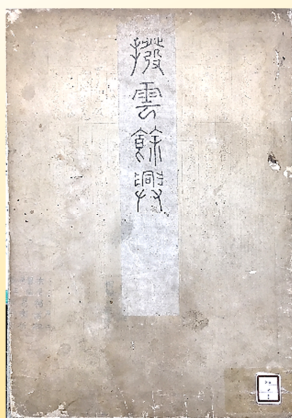 撥雲餘興